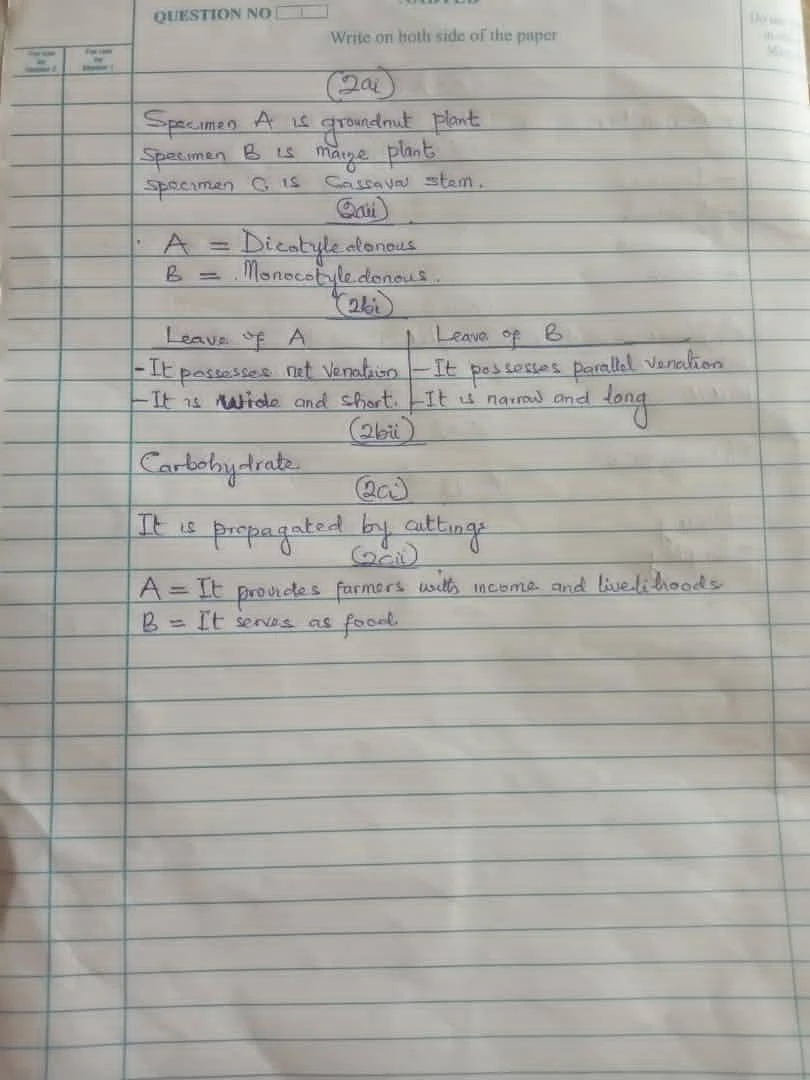 QUESTION NO
Write on both side of the paper
(2ai)
Specimen A is groundnut plant
Specimen B is maize plant
Specimen C is Cassava stem.
(2aii)
A = Dicotyledonous
B = Monocotyledonous.
(2bi)
Leave of A | Leave of B
- It possesses net venation | - It possesses parallel venation
- It is wide and short. | - It is narrow and long
(2bii)
Carbohydrate
(2ci)
It is propagated by cuttings
(2cii)
A = It provides farmers with income and livelihoods
B = It serves as food